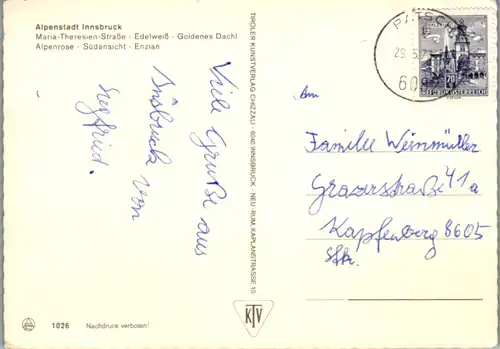 Alpenstadt Innsbruck
Maria-Theresien-Straße · Edelweiß · Goldenes Dachl
Alpenrose · Südansicht · Enzian
Viele Grüße aus
Insbruck von
Siegfried.
TIROLER KUNSTVERLAG CHIZZALI · 6040 INNSBRUCK · NEU-RUM, KAPLANSTRASSE 10
KTV
PATSCH
29. 5. 7
60
70
REPUBLIK ÖSTERREICH
An
Familie Weinmüller
Grazerstraße 41a
Kapfenberg 8605
Stk.
1026 Nachdruck verboten!